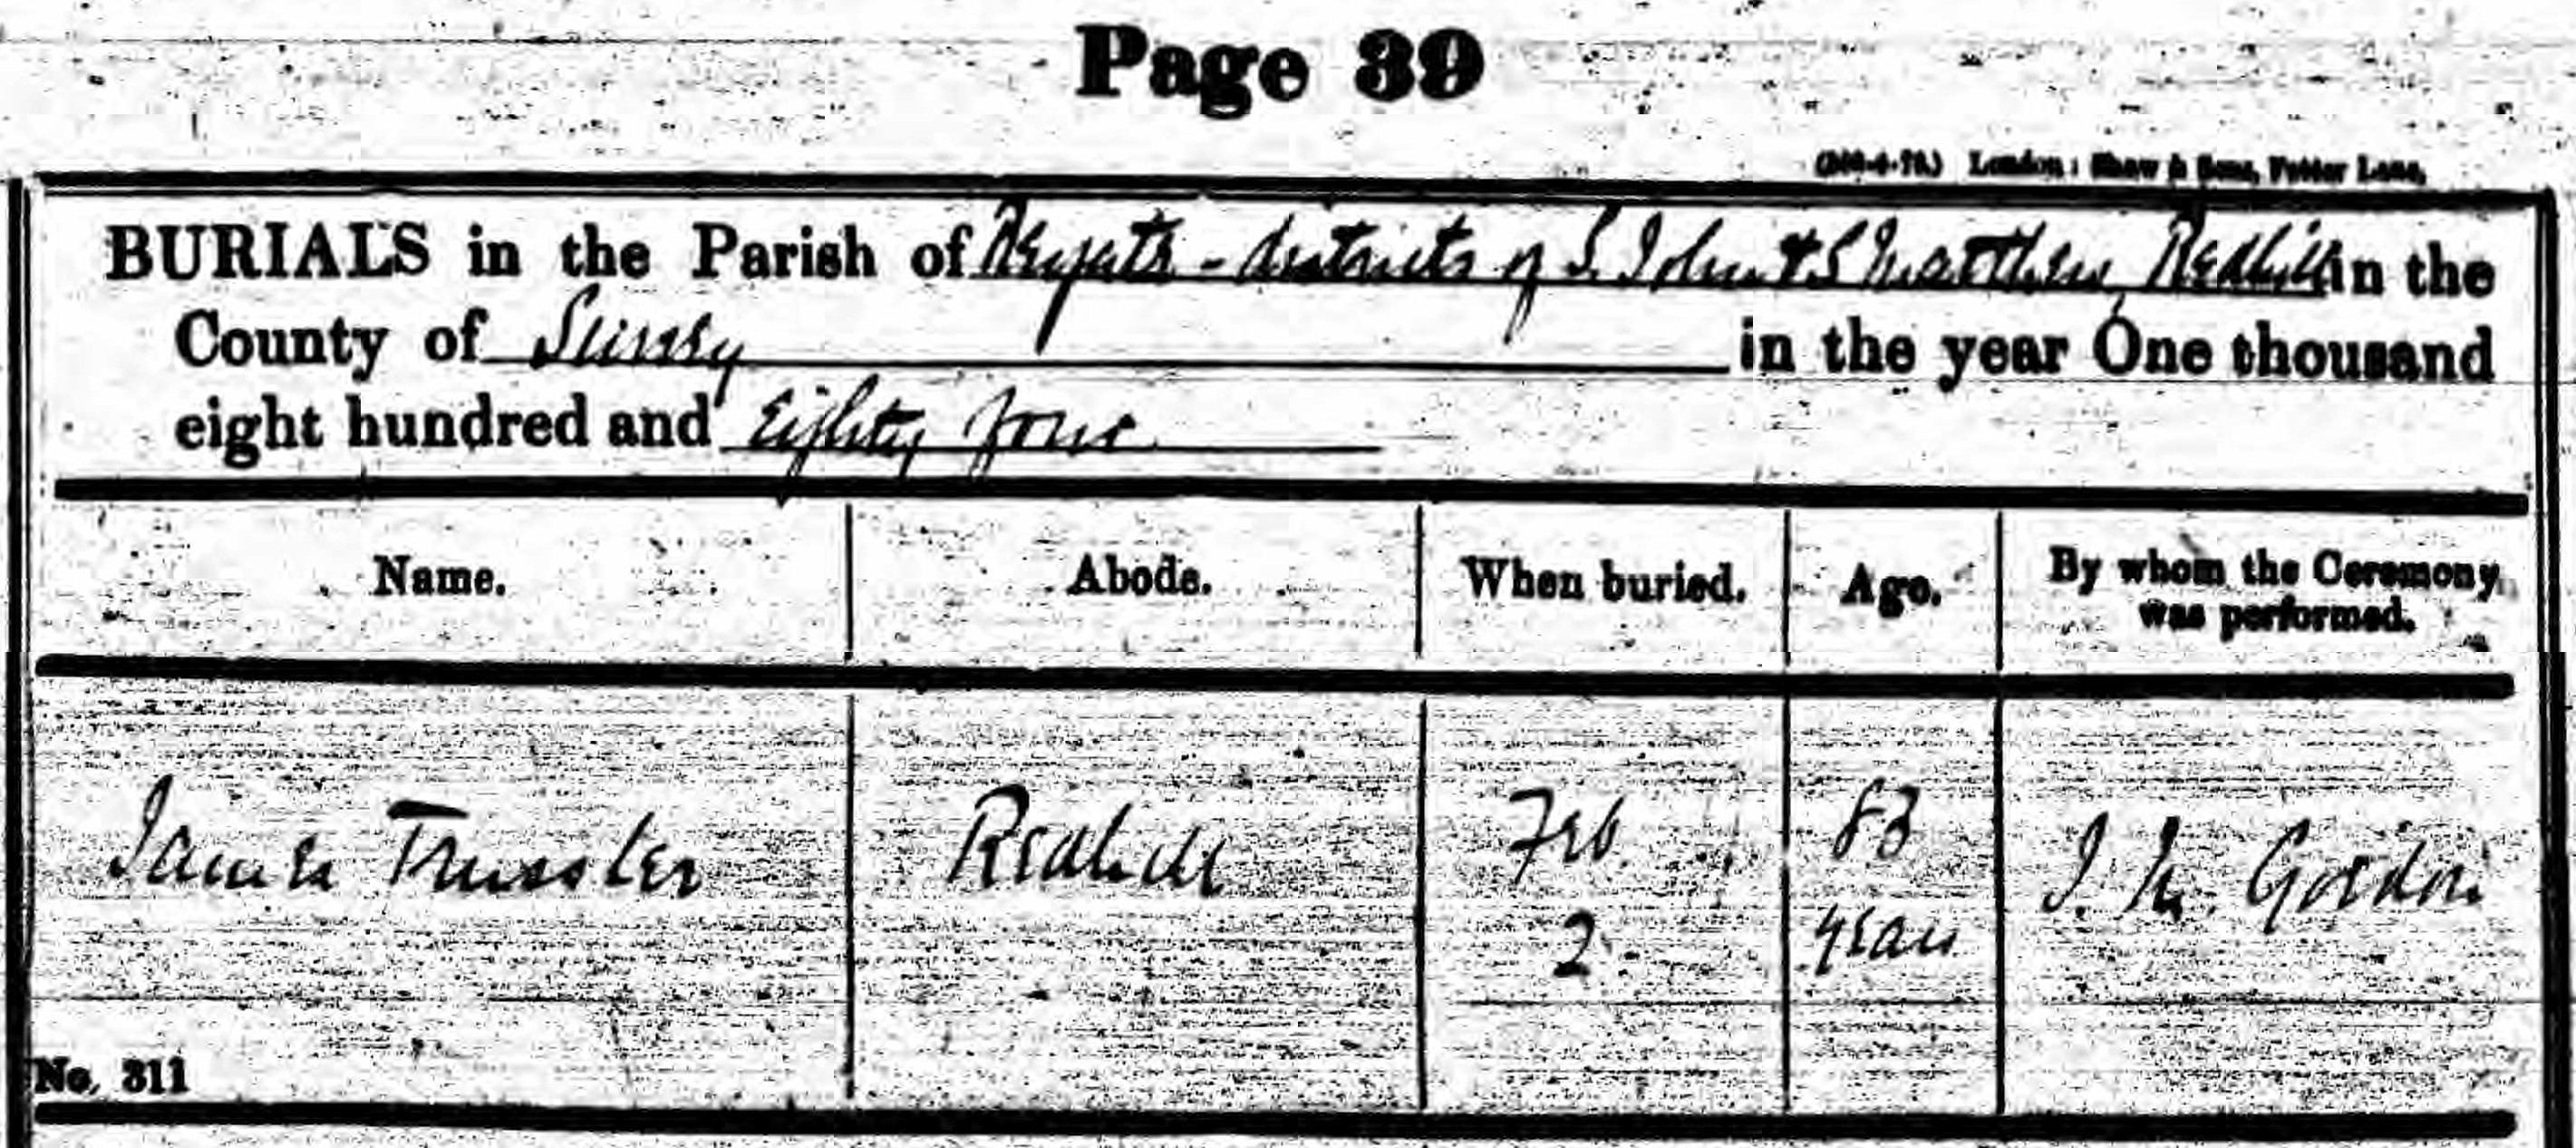 Page 39
London: Shaw & Sons, Fetter Lane.
BURIALS in the Parish of Reigate - districts of S. John & S Matthew, Redhill in the
County of Surrey in the year One thousand
eight hundred and Eighty four
Name. Abode. When buried. Age. By whom the Ceremony
was performed.
James Trusster Redhill Feb. 83 J. M. Gordon
2 years
No. 311